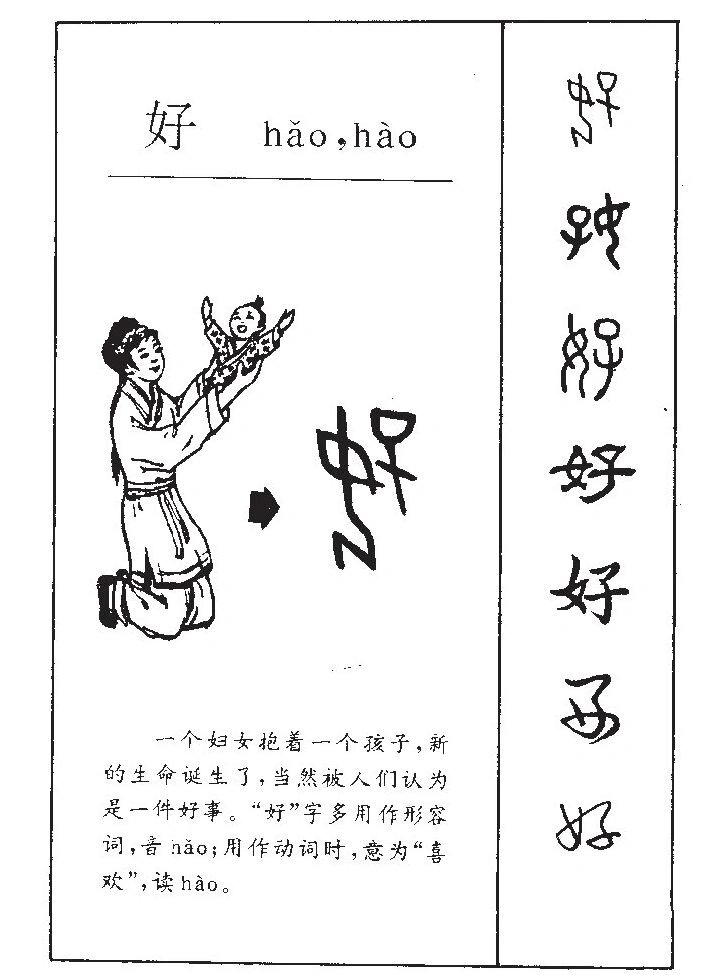 好 hǎo,hào
一个妇女抱着一个孩子,新
的生命诞生了,当然被人们认为
是一件好事。“好”字多用作形容
词,音hǎo;用作动词时,意为“喜
欢”,读hào。
好
好
好
好
好
好
好
好